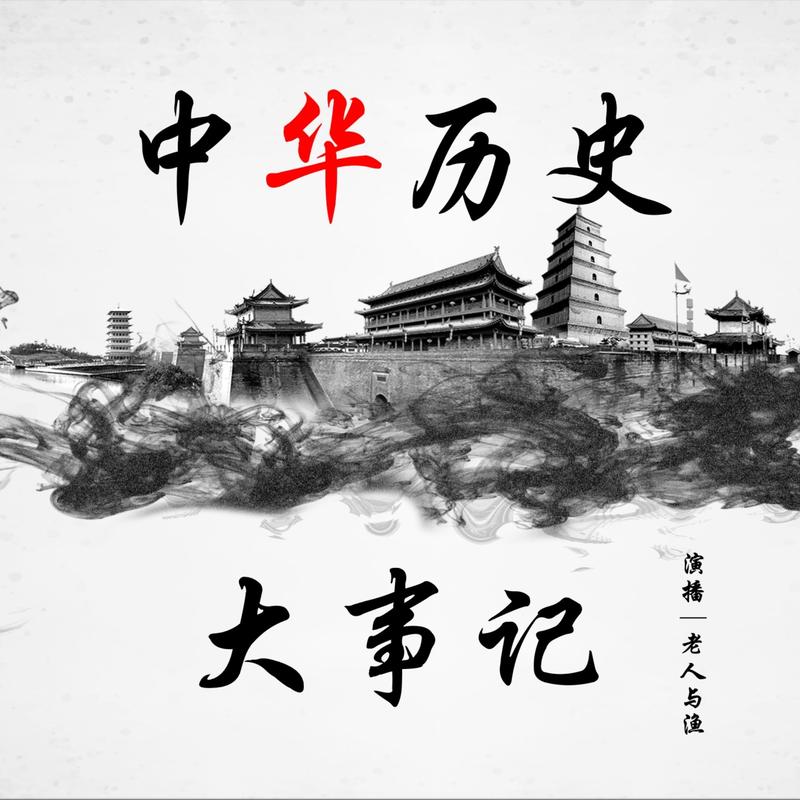 中华历史
大事记
演播｜老人与渔